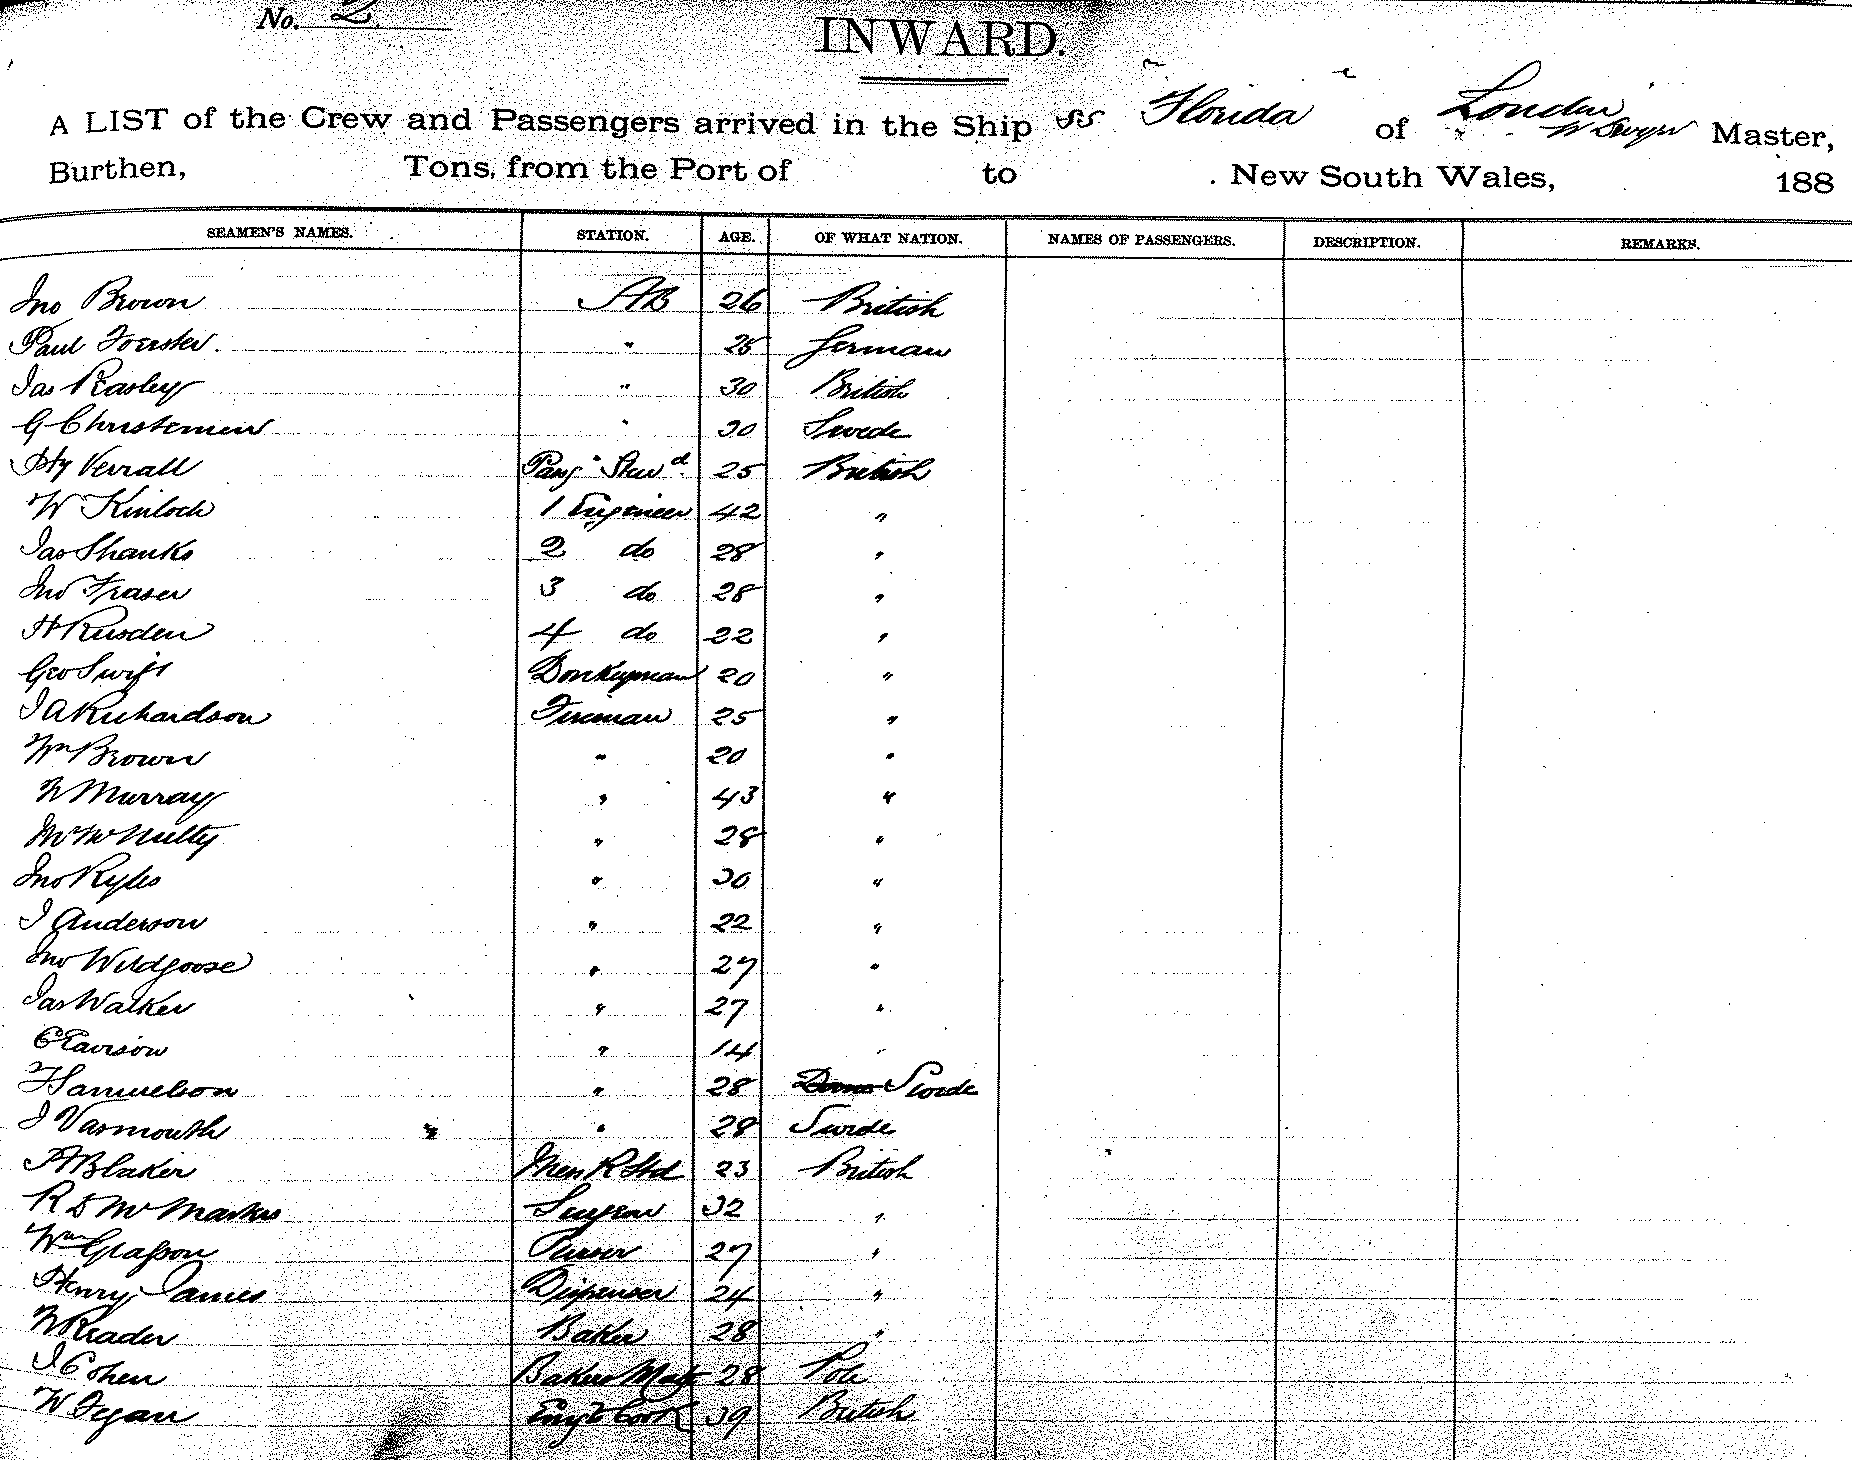 No. 2
INWARD.
A LIST of the Crew and Passengers arrived in the Ship SS Florida of London W Dwyer Master,
Burthen, Tons, from the Port of to . New South Wales, 188
SEAMEN'S NAMES. STATION. AGE. OF WHAT NATION. NAMES OF PASSENGERS. DESCRIPTION. REMARKS.
Jno Brown AB 26 British
Paul Foerster. " 25 German
Jas Reasley " 30 British
G Christensen " 30 Swede
Hy Verrall Pasgr Stewd 25 British
W Kinloch 1 Engineer 42 "
Jas Shanks 2 do 28 "
Jno Fraser 3 do 28 "
H Rusden 4 do 22 "
Geo Swift Donkeyman 20 "
J A Richardson Fireman 25 "
Wm Brown " 20 "
W Murray " 43 "
Mr McNulty " 28 "
Jno Ryles " 30 "
J Anderson " 22 "
Jno Wildgoose " 27 "
Jas Walker " 27 "
" 14 "
F Samuelson " 28 Swede
J Varmouth " 28 Swede
H Blaker Mess R Std 23 British
R D Surgeon 32 "
Wm Glasson Purser 27 "
Henry James Dispenser 24 "
W Reader Baker 28 "
J Cohen Bakers Mate 28 Pole
W Fegan Cook 39 British